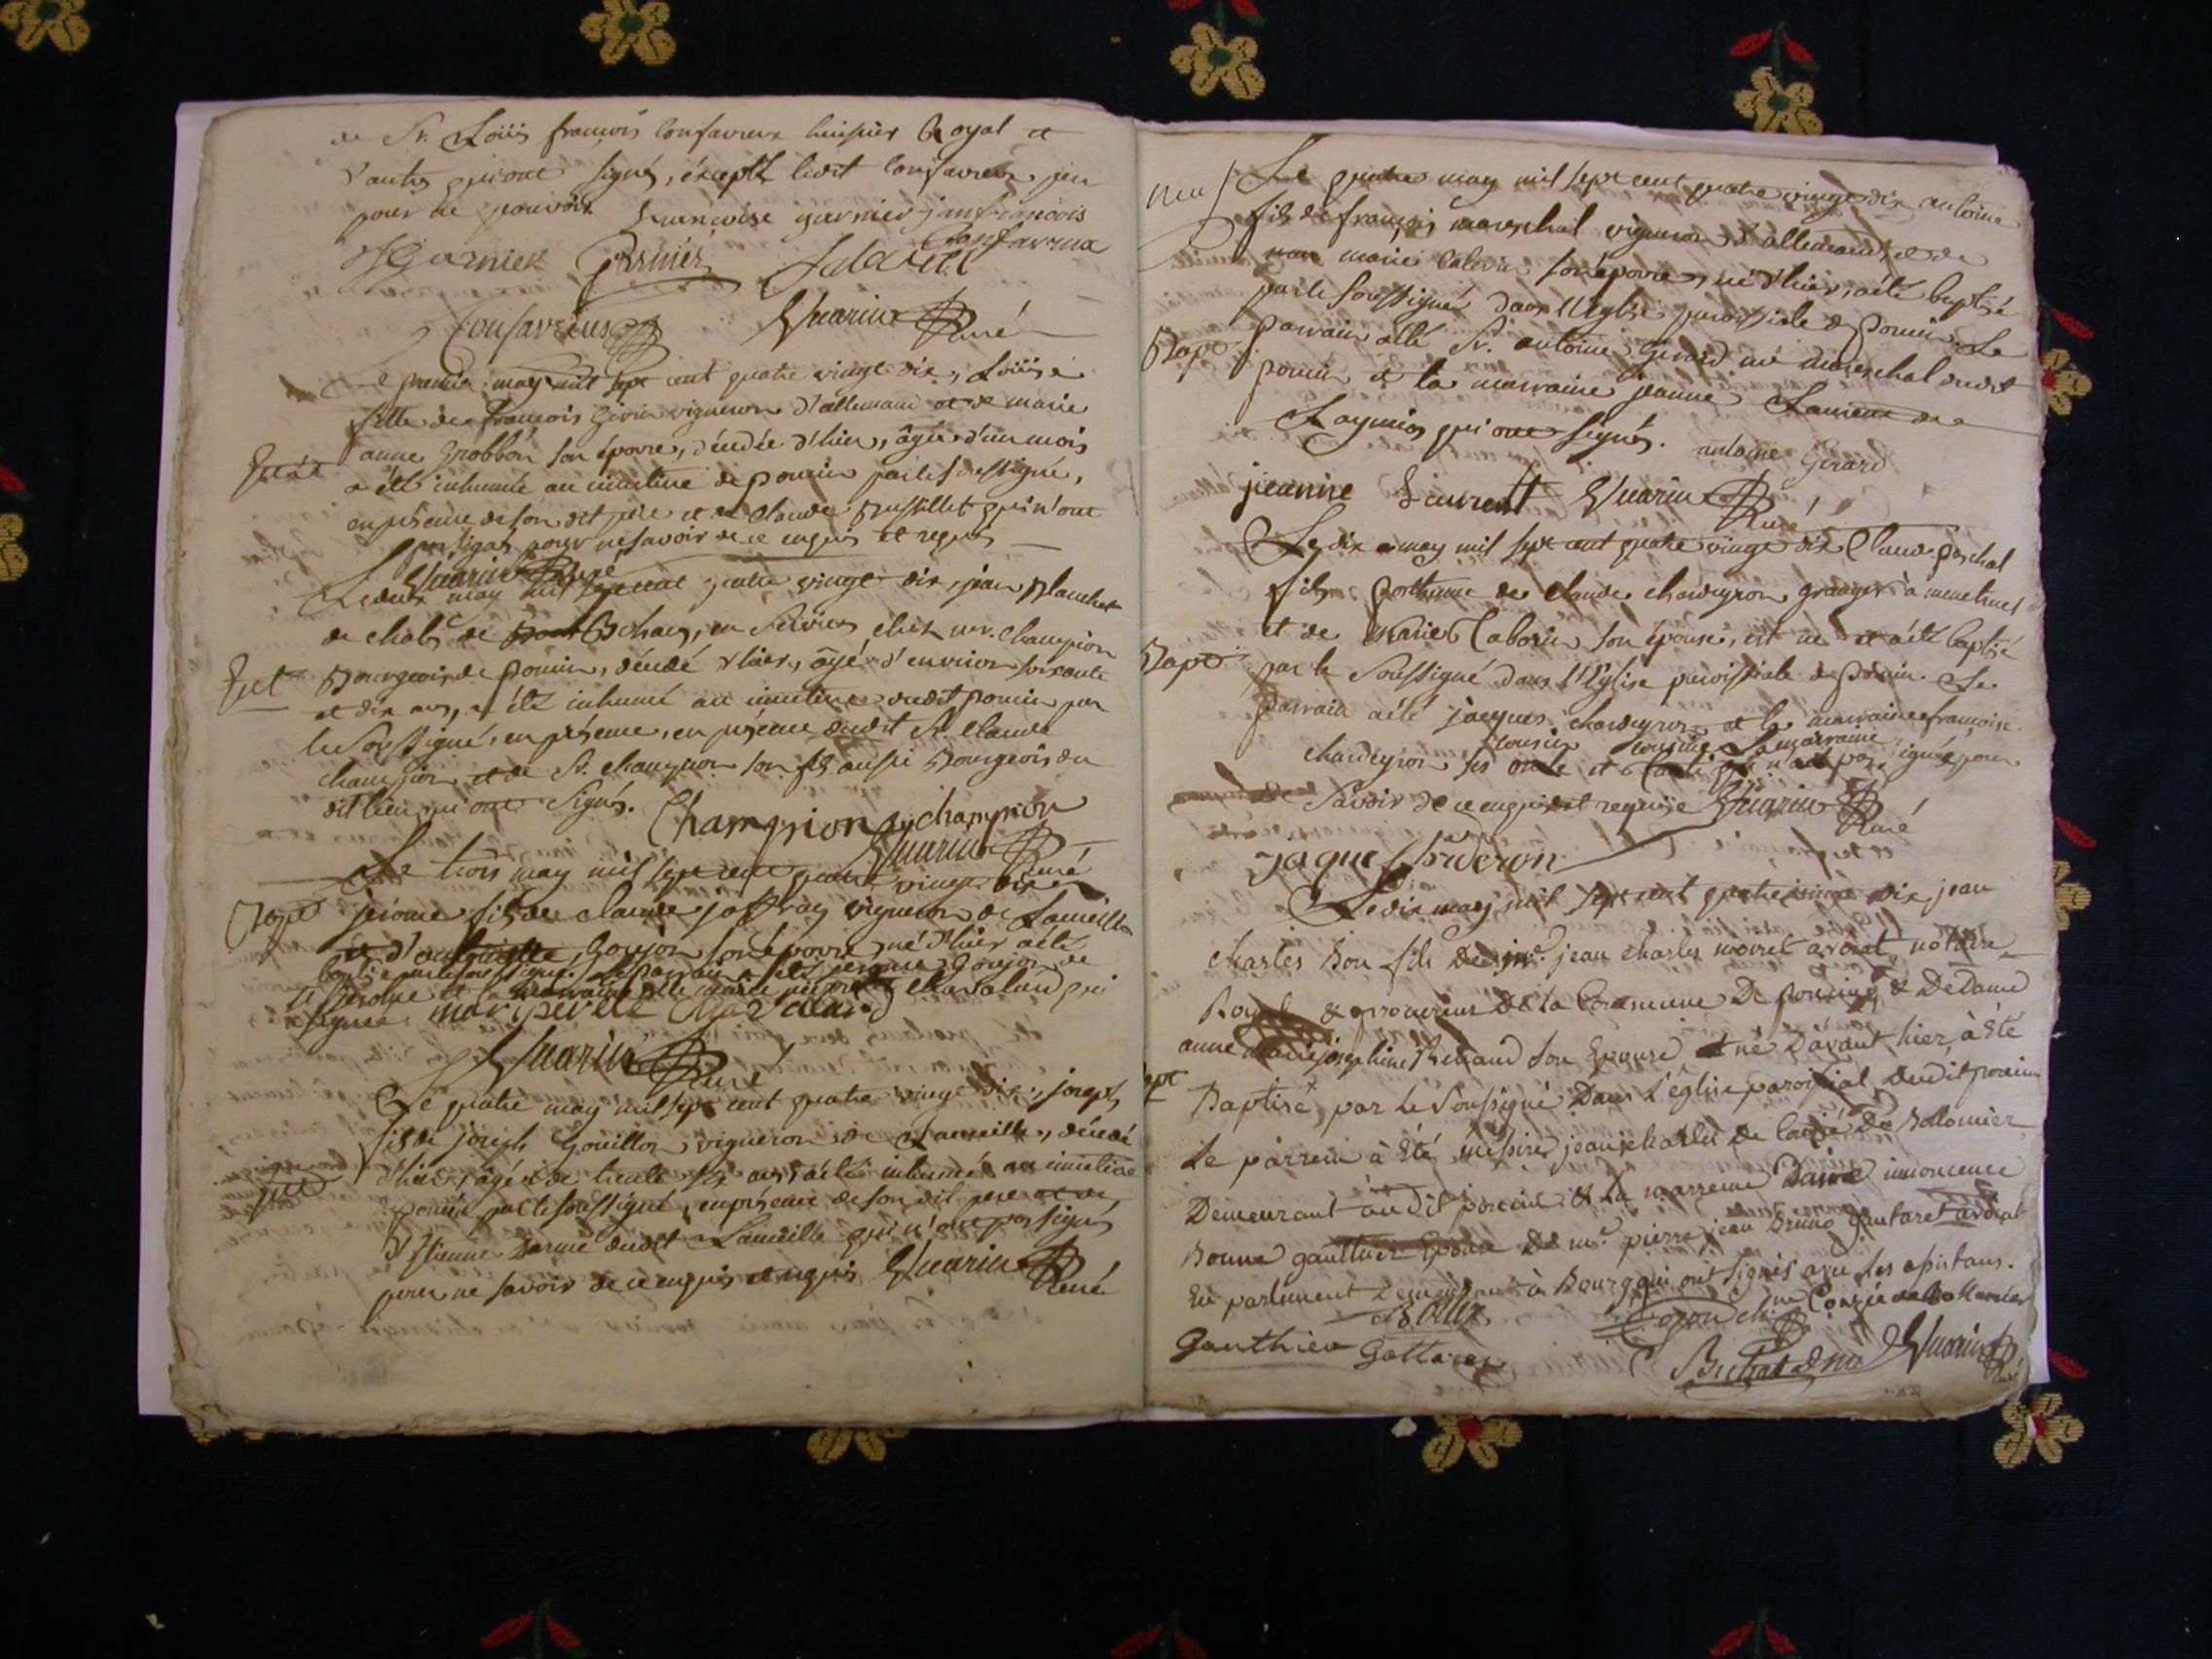 de Sr. Loüis françois Confavreux huissier Royal et
d'autres qui ont signés, excepté ledit Confavreux, pere
pour ne pouvoir. françoise garnier jean francois
Confavreux
Garnier
Confavreux Guarin Curé
Le premier may mil sept cent quatre vingt dix, Loüise
fille de françois Givin vigneron d'allemand et de marie
anne Grobbon son épouse, décédée d'hier, âgée d'un mois
a été inhumée au cimetiere de poncin par le soussigné,
en présence de son dit père et de Claude Russillet qui n'ont
pas signés pour ne savoir de ce enquis et requis
Guarin Curé
Le deux may mil sept cent quatre vingt dix, jean Blanchet
de Chals de en service chez mr. Champion
Bourgeois de poncin, décédé d'hier, âgé d'environ soixante
et dix ans, a été inhumé au cimetiere dudit poncin par
le soussigné, en présence, en présence dudit Sr. Claude
Champion et de Sr. Champion son fils aussi Bourgeois du
dit lieu qui ont signés. Champion Champion
Guarin Curé
Le trois may mil sept cent quatre vingt dix
Bapt jerome fils de claude joffray vigneron de Lameilla
et d' Goujon son épouse, né d'hier a été
baptisé par le soussigné. Le parrain a été jerome Goujon de
st jerome et la marraine marie pierrette Chavaland qui
a signée. mari pierete Chavaland
Guarin Curé
Le quatre may mil sept cent quatre vingt dix, joseph
fils de joseph Gouillon vigneron de Lameilla, décédé
d'hier, âgé de trente six ans, a été inhumé au cimetiere de
poncin par le soussigné, en présence de son dit pere et de
Etienne dudit Lameilla qui n'ont pas signés
pour ne savoir de ce enquis et requis Guarin Curé
Le quatre may mil sept cent quatre vingt dix antoine
fils de françois mareschal vigneron d'allemand, et de
marie son épouse, né d'hier, a été baptisé
par le soussigné dans l'Eglise paroissiale de poncin. Le
Bapt parrain a été Sr. antoine Girard né mareschal dudit
poncin et la marraine jeanne Laurent de
Leymiat qui ont signés. antoine Girard
jeanne Laurent Guarin Curé
Le dix may mil sept cent quatre vingt dix Claude paschal
fils posthume de Claude chardeyron granger à menetruel
et de Marie Caborin son épouse, est né et a été baptisé
Bapt par le soussigné dans l'Eglise paroissiale de poncin. Le
parrain a été jacques chardeyron et la marraine françoise
cousin cousine La marraine
chardeyron ses oncle et tante qui n'a pas signée pour
savoir de ce enquise et requise Guarin Curé
jaque
Le dix may mil sept cent quatre vingt dix jean
charles Bon fils de mr. jean charles morret avocat, notaire
Royal & procureur de la Commune De poncin & De dame
anne marie josephine Renaud son Epouse et né D'avant hier, à Eté
Baptisé par Le Soussigné Dans L'église paroissial dudit poncin
Le parrein à Eté messire jean charles de Cauzé de Balomier
Demeurant audit poncin et La marreine Dame innocence
Bonne gauthier Epouse De mr. pierre jean Bruno gautaret avocat
En parlement Demeurant à Bourg qui ont signés avec les assistans.
Gauthier
Guarin Curé